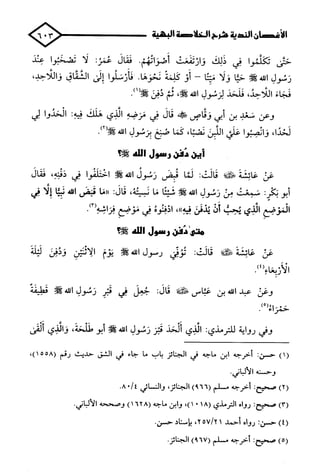 الأغصان الندية شرح الخلاصة البهية
٦٠٣
حَتَّى تَكَلَّمُوا فِي ذَلِكَ وَارْتَفَعَتْ أَصْوَاتُهُمْ. فَقَالَ عُمَرُ: لَا تَصْخَبُوا عِنْدَ
رَسُولِ الله ﷺ حَيًّا وَلَا مَيِّتًا - أَوْ كَلِمَةً نَحْوَهَا. فَأَرْسَلُوا إِلَى الشَّقَّاقِ وَاللَّاحِدِ،
فَجَاءَ اللَّاحِدُ، فَلَحَدَ لِرَسُولِ الله ﷺ، ثُمَّ دُفِنَ ﷺ(١).
وعن سَعْدِ بن أبي وَقَّاصٍ ﷺ قَالَ فِي مَرَضِهِ الَّذِي هَلَكَ فِيهِ: الْحَدُوا لِي
لَحْدًا، وَانْصِبُوا عَلَيَّ اللَّبِنَ نَصْبًا، كَمَا صُنِعَ بِرَسُولِ الله ﷺ(٢).
أين دُفن رسول الله ﷺ؟
عَنْ عَائِشَةَ ﷺ قَالَتْ: لَمَّا قُبِضَ رَسُولُ الله ﷺ اخْتَلَفُوا فِي دَفْنِهِ، فَقَالَ
أبو بَكْرٍ: سَمِعْتُ مِنْ رَسُولِ الله ﷺ شَيْئًا مَا نَسِيتُهُ، قَالَ: «مَا قَبَضَ الله نَبِيًّا إِلَّا فِي
الْمَوْضِعِ الَّذِي يُحِبُّ أَنْ يُدْفَنَ فِيهِ»، ادْفِنُوهُ فِي مَوْضِعِ فِرَاشِهِ(٣).
متى دُفن رسول الله ﷺ؟
عَنْ عَائِشَةَ ﷺ قَالَتْ: تُوُفِّيَ رسول الله ﷺ يَوْمَ الِاثْنَيْنِ وَدُفِنَ لَيْلَةَ
الْأَرْبِعَاءِ(٤).
وعَنْ عبد الله بن عَبَّاسٍ ﷺ قَالَ: جُعِلَ فِي قَبْرِ رَسُولِ الله ﷺ قَطِيفَةٌ
حَمْرَاءُ(٥).
وفي رواية للترمذي: الَّذِي أَلْحَدَ قَبْرَ رَسُولِ الله ﷺ أبو طَلْحَةَ، وَالَّذِي أَلْقَى
(١) حسن: أخرجه ابن ماجه في الجنائز باب ما جاء في الشق حديث رقم (١٥٥٨)،
وحسنه الألباني.
(٢) صحيح: أخرجه مسلم (٩٦٦) الجنائز، والنسائي ٨٠/٤.
(٣) صحيح: رواه الترمذي (١٠١٨)، وابن ماجه (١٦٢٨) وصححه الألباني.
(٤) حسن: رواه أحمد ٢٥٧/٢١، بإسناد حسن.
(٥) صحيح: أخرجه مسلم (٩٦٧) الجنائز.